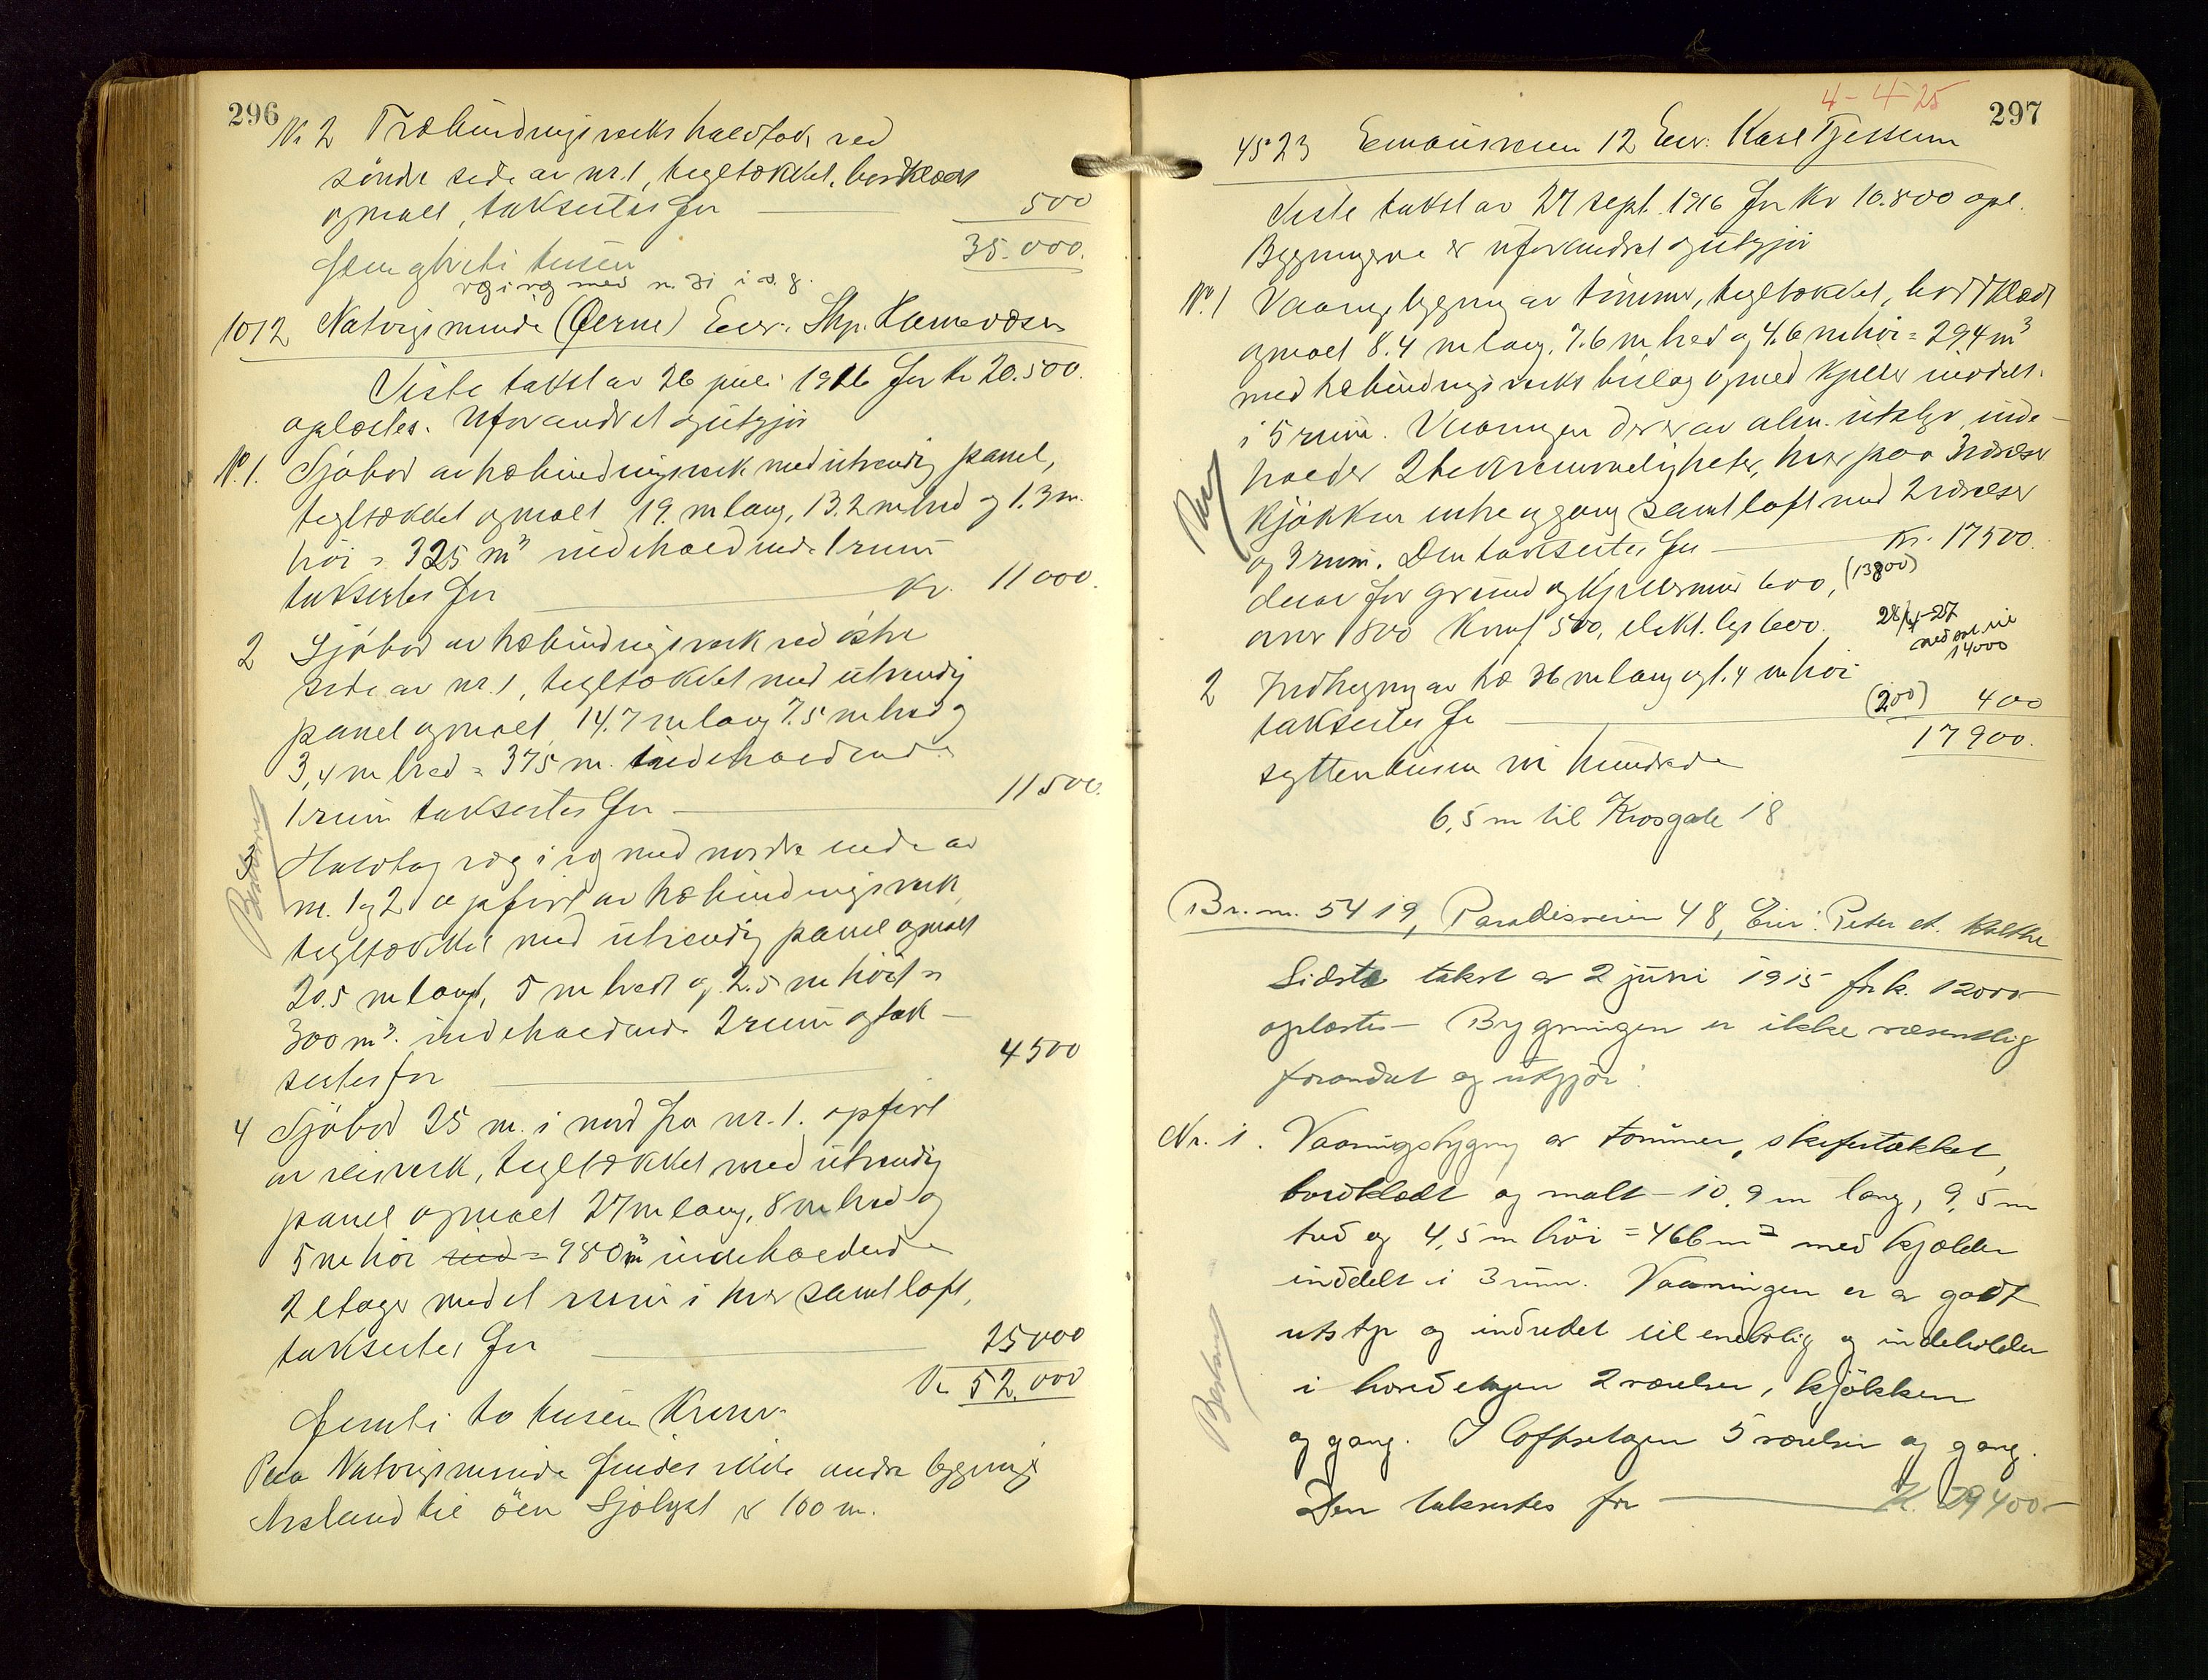 296
Nr 2 Træbindingsverks halvtak ved
söndre side av nr. 1, tegltækket, bordklædt
og malt, takseres for 500
35.000.
Fem og treti tusen
væg i væg med n. 31 i d. g.
1012 Natvigs minde (Öerne) Eier: Skp.
Siste takst av 26 juli 1916 for kr 20.500.
oplæstes. Uforandret og utgjör
No. 1. Sjöbod av træbindingsverk med utvendig panel,
tegltækket og malt 19. m lang, 13.2 m bred og 1.3 m.
höi = 325 m³ indeholdende 1 rum
takseres for Kr. 11000.
2 Sjöbod av træbindingsverk ved östre
side av nr. 1, tegltækket med utvendig
panel og malt 14.7 m lang 7.5 m bred og
3,4 m bred = 375 m. indeholdende
1 rum takseres for 11500.
Halvtag væg i væg med nordre ende av
nr. 1 og 2 opfört av træbindingsverk,
tegltækket med utvendig panel og malt
20.5 m langt, 5 m bredt og 2.5 m höit =
300 m³. indeholdende 2 rum og tak-
seres for 4500
4 Sjöbod 25 m. i nord fra nr. 1. opfört
av reisverk, tegltækket med utvendig
panel og malt 27 m lang, 8 m bred og
5 m höi = 980 m³ indeholdende
2 etager med et rum i hver samt loft,
takseres for 25000
Kr 52.000
Femti to tusen Kroner
Paa Natvigsminde findes ikke andre bygning
Avstand til öen Sjölyst er 100 m.
4-4-25
297
4523 Emausveien 12 Eier: Karl Tjessem
Siste takst av 27 sept. 1916 for kr 10.800 opl.
Bygningerne er uforandret og utgjör
No. 1 Vaaningsbygning av tömmer, tegltækket, bordklædt
og malt 8.4 m lang, 7.6 m bred og 4.6 m höi = 294 m³
med træbindingsverks bislag og med kjelder inddelt
i 5 rum. Vaaningen der er av alm. utstyr, inde-
holder 2 beboelsesleiligheter, hver paa 3 værelser
kjökken entre og gang samt loft med 2 værelser
og 3 rum. Den takseres for Kr. 17500.
derav for grund og kjeldermur 600, (13800)
ovner 1800 komf 500, elekt. lys 600.
28/4-27
14000
2 Indhegning av træ 36 m lang og 1.4 m höi
takseres for (200) 400
17900.
sytten tusen ni hundrede
6,5 m til Krosgate 18
Br. nr. 5419, Paradisveien 48, Eier: Peter
Sidste takst av 2 juni 1915 for k. 12000
oplæstes - Bygningen er ikke væsentlig
forandret og utgjör:
Nr. 1. Vaaningsbygning av tömmer, skifertækket,
bordklædt og malt - 10,9 m lang, 9,5 m
bred og 4,5 m höi = 466 m³ med kjælder
inddelt i 3 rum. Vaaningen er av godt
utstyr og indredet til enebolig og indeholder
i hovedetagen 2 værelser, kjökken
og gang. I loftsetagen 5 værelser og gang.
Den takseres for K. 29400-